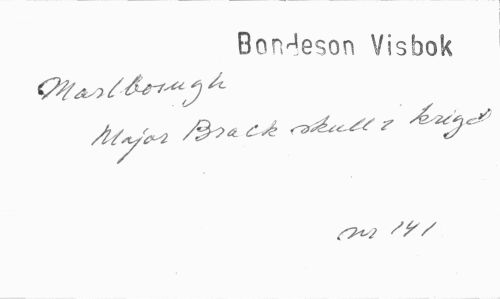 Bondeson Visbok
Marlborough
Major Brack skull i kriget
nr 141